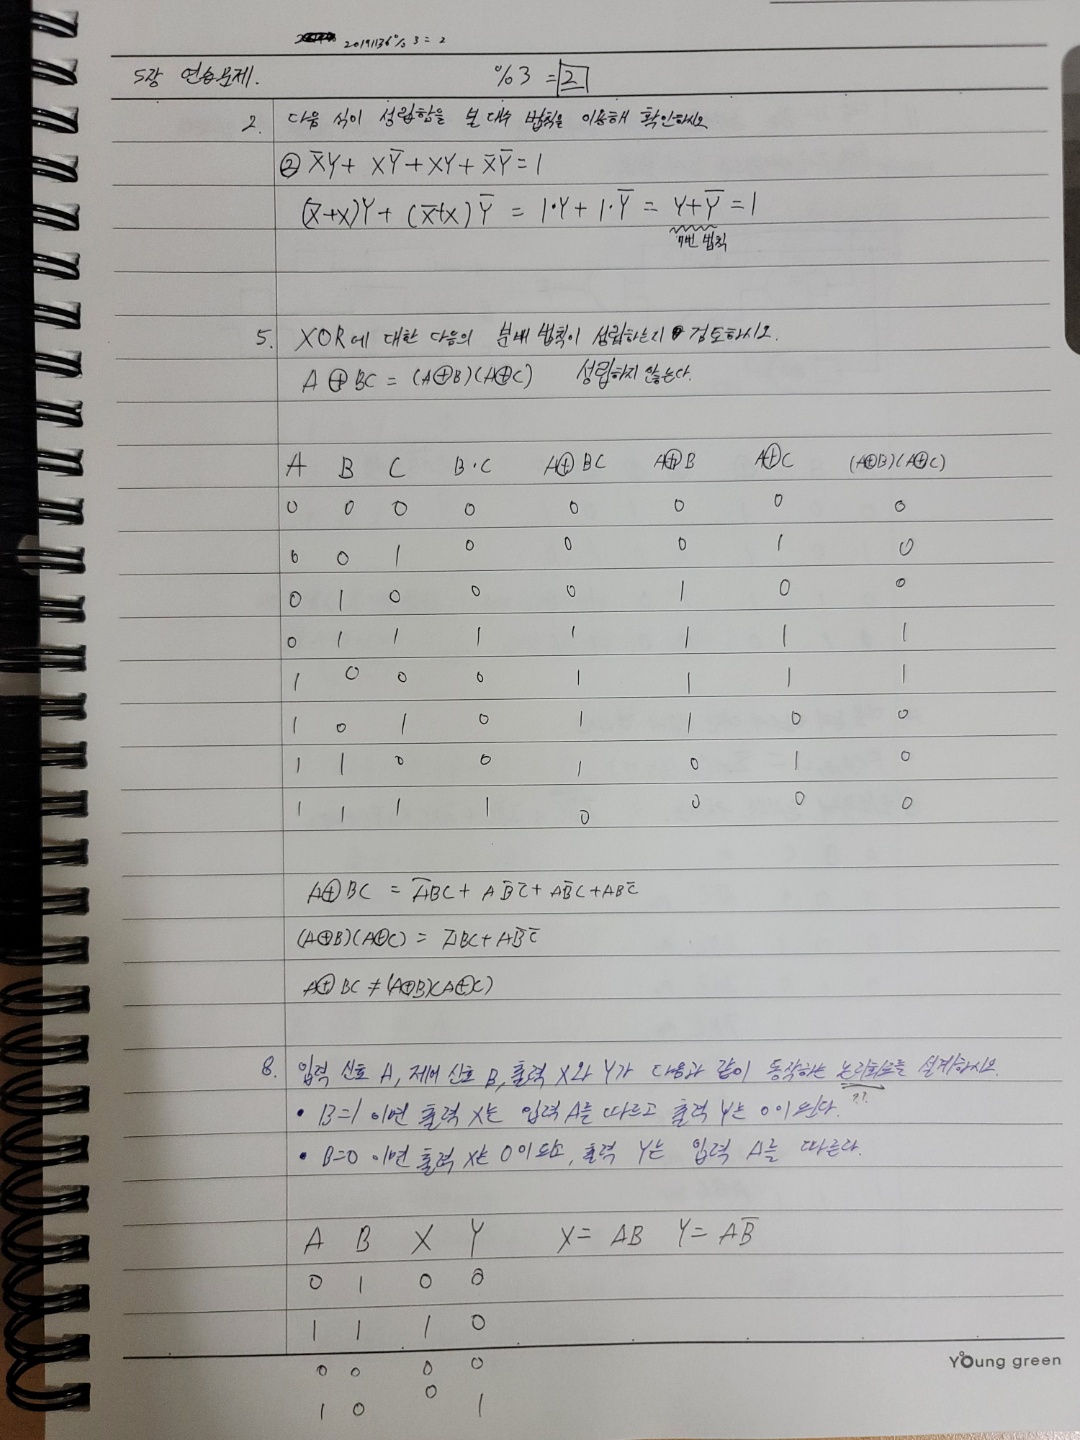 20191136 % 3 = 2
5장 연습문제.
%3 = 2
2. 다음 식이 성립함을 부울 대수 법칙을 이용해 확인하시오
② X̅Y + XY̅ + XY + X̅Y̅ = 1
(X̅+X)Y + (X̅+X)Y̅ = 1·Y + 1·Y̅ = Y+Y̅ = 1
7번 법칙
5. XOR에 대한 다음의 분배 법칙이 성립하는지 검토하시오.
A ⊕ BC = (A⊕B)(A⊕C) 성립하지 않는다.
A B C B·C A⊕BC A⊕B A⊕C (A⊕B)(A⊕C)
0 0 0 0 0 0 0 0
0 0 1 0 0 0 1 0
0 1 0 0 0 1 0 0
0 1 1 1 1 1 1 1
1 0 0 0 1 1 1 1
1 0 1 0 1 1 0 0
1 1 0 0 1 0 1 0
1 1 1 1 0 0 0 0
A⊕BC = A̅BC + AB̅C̅ + AB̅C + ABC̅
(A⊕B)(A⊕C) = A̅BC + AB̅C̅
A⊕BC ≠ (A⊕B)(A⊕C)
8. 입력 신호 A, 제어 신호 B, 출력 X와 Y가 다음과 같이 동작하는 논리회로를 설계하시오.
??
• B=1 이면 출력 X는 입력 A를 따르고 출력 Y는 0이 된다.
• B=0 이면 출력 X는 0이 되고, 출력 Y는 입력 A를 따른다.
A B X Y X = AB Y = AB̅
0 1 0 0
1 1 1 0
0 0 0 0
1 0 0 1
Young green